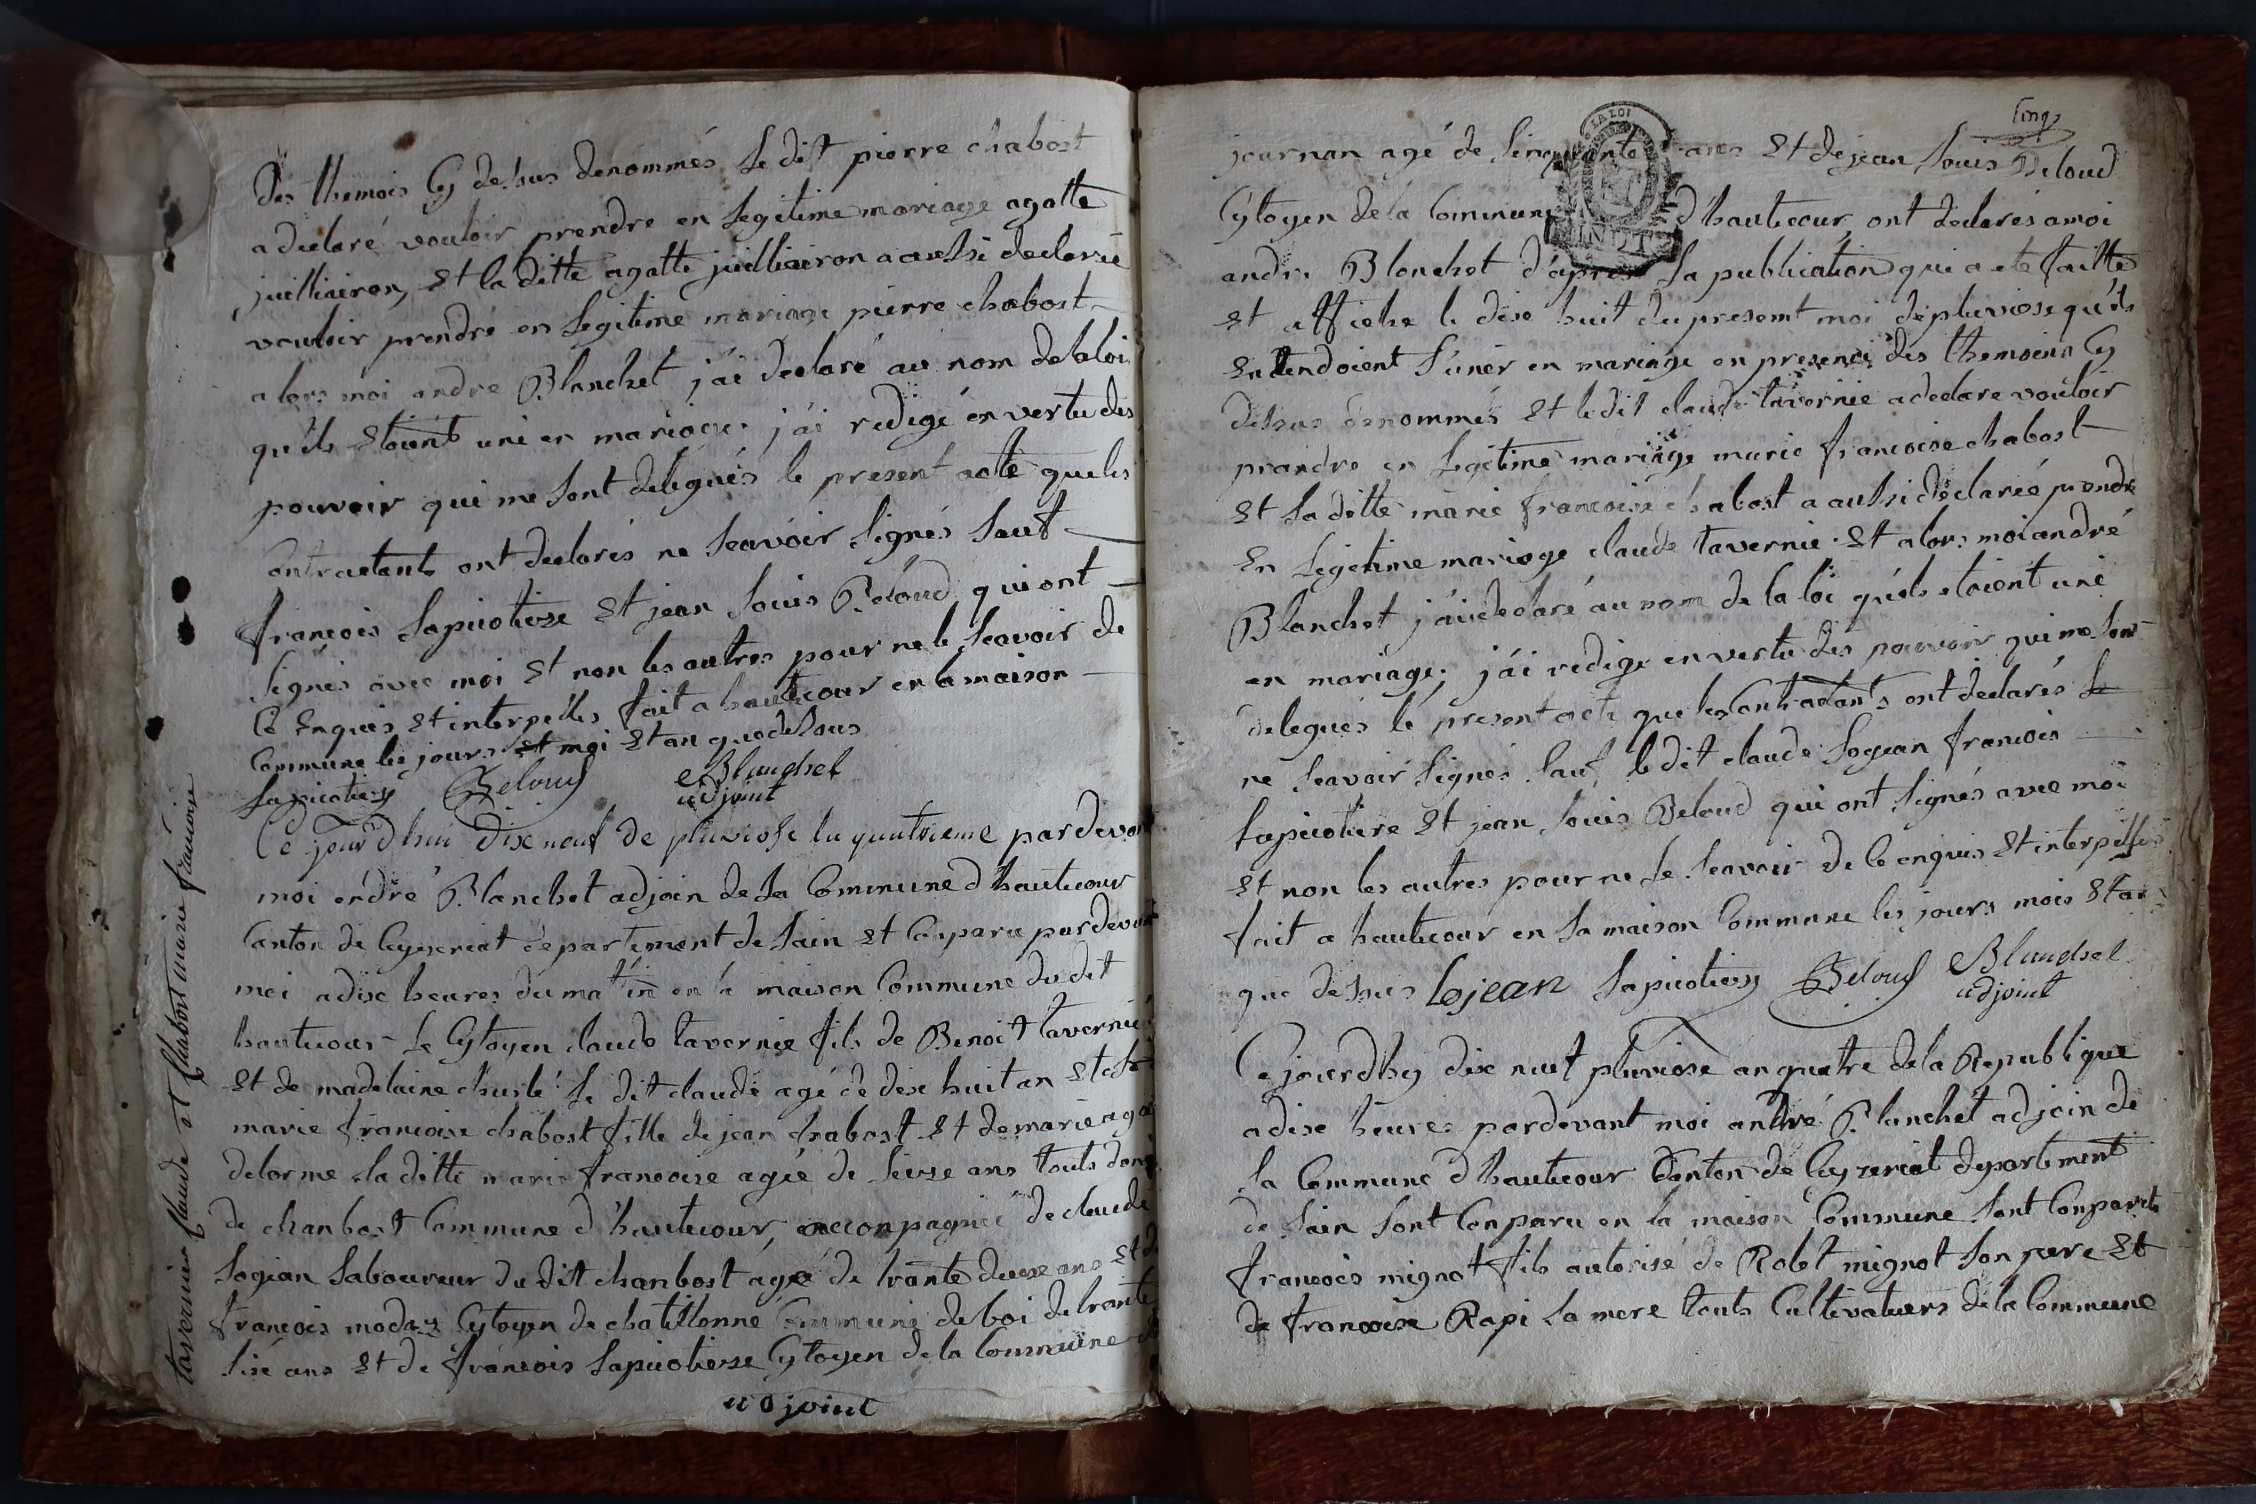 des themois Cy dessus denommés le dit pierre chabost
a declaré vouloir prendre en legitime mariage agatte
juilliairon, et la ditte agatte juilliairon a aussi declarée
vouloir prendre en legitime mariage pierre chabost
alors moi andre Blanchet j'ai declaré au nom de la loi
qu'ils etoient uni en mariage. j'ai redigé en vertu des
pouvoir qui me sont delegués le present acte que les
Contractents ont declarés ne Scavoir Signés Sauf
francois lapicotiere et jean louis Beloud qui ont
Signés avec moi et non les autres pour ne le Scavoir de
Ce Enquis et interpellés fait a hautecour en la maison
Commune les jours et moi et an que dessus
Lapicotiere Beloud Blanchet
adjoint
Ce jour d'hui dix neuf de pluviose lan quatrieme par devant
moi endré Blanchet adjoin de la Commune d'hautecour
Canton de Ceyzeriat departement de lain et Conparu par devant
moi a dix heures du matin en la maison Commune du dit
hautecour le Cytoyen claude tavernie fils de Benoit tavernie
et de madelaine chuslé le dit claude agé de dix huit an et
marie francoise chabost fille de jean chabost et de marie
delorme la ditte marie francoise agée de seize ans touts
de chanbost Commune d'hautecour, acconpagnée de claude
logean laboureur du dit chanbost agé de trante deuxe ans et de
francois modaz Cytoyen de chatillonne Commune de boi de trante
sixe ans et de francois lapicotiere Cytoyen de la Commune de
adjoint
tavernier Claude et Chabost marie francoise
Cinq
journan agé de Cinquante ans et de jean louis Beloud
LA LOI
Cytoyen de la Commune d'hautecour, ont declarés a moi
andre Blanchet d'apres la publication qui a ete faitte
et affiche le dixe huit du present moi de pluviose qu'ils
entendoient s'unir en mariage en presence des themoins Cy
dessus denommés et le dit claude tavernie a declare vouloir
prandre en legitime mariage marie francoise chabost
et la ditte marie francoise chabost a aussi declarée prendre
en legitime mariage claude tavernie. et alors moi andré
Blanchet j'ai declaré au nom de la loi qu'ils etoient uni
en mariage. j'ai redige en vertu des pouvoir qui me sont
delegués le present acte que les Contractants ont declarés
ne Scavoir Signés sauf le dit claude logean francois
lapicotiere et jean louis Beloud qui ont Signés avec moi
et non les autres pour ne le Scavoir de Ce enquis et interpellés
fait a hautecour en la maison Commune les jours mois et an
que dessus lojean Lapicotiere Beloud Blanchet
adjoint
Ce jourdhy dix neuf pluviose an quatre de la Republique
a dixe heures pardevant moi andré Blanchet adjoin de
la Commune d'hautecour Canton de Ceyzeriat departement
de lain sont Conparu en la maison Commune sont Conparut
francois mignot fils autorisé de Robet mignot son pere et
de francoise Rapi sa mere touts Cultivateurs de la Commune